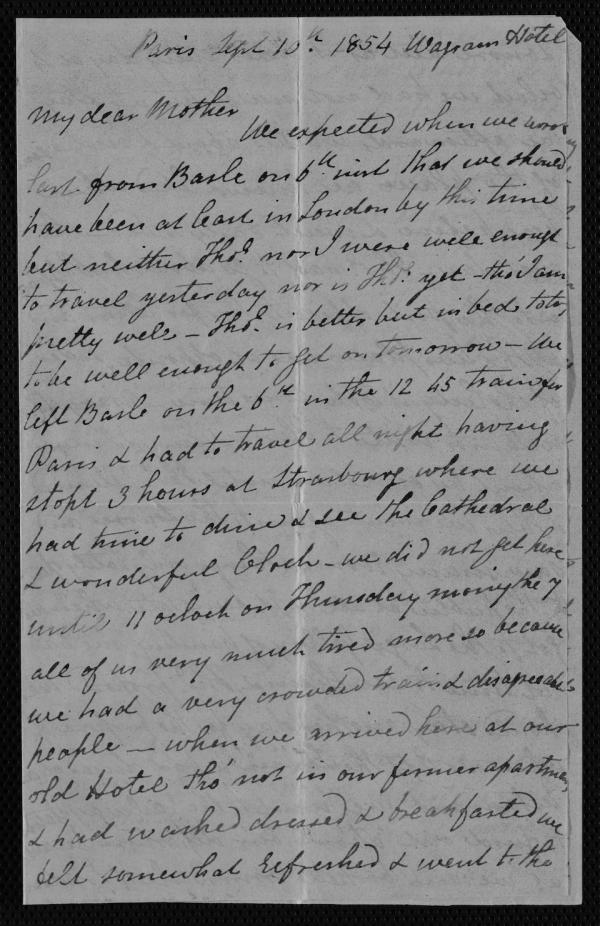 Paris Sept 10th 1854 Wagram Hotel
My dear Mother
We expected when we wrote
last from Basle on 6th inst that we should
have been at least in London by this time
but neither Thos. nor I were well enough
to travel yesterday nor is Thos. yet - tho' I am
pretty well - Thos. is better but in bed
to be well enough to get on tomorrow - We
left Basle on the 6th in the 12 45 train for
Paris & had to travel all night having
stopt 3 hours at Strasbourg where we
had time to dine & see the Cathedral
& wonderful Clock - we did not get here
until 11 oclock on Thursday morng the 7
all of us very much tired more so because
we had a very crowded train & disagreeable
people - when we arrived here at our
old Hotel tho' not in our former apartmen
& had washed dressed & breakfasted we
felt somewhat refreshed & went to the